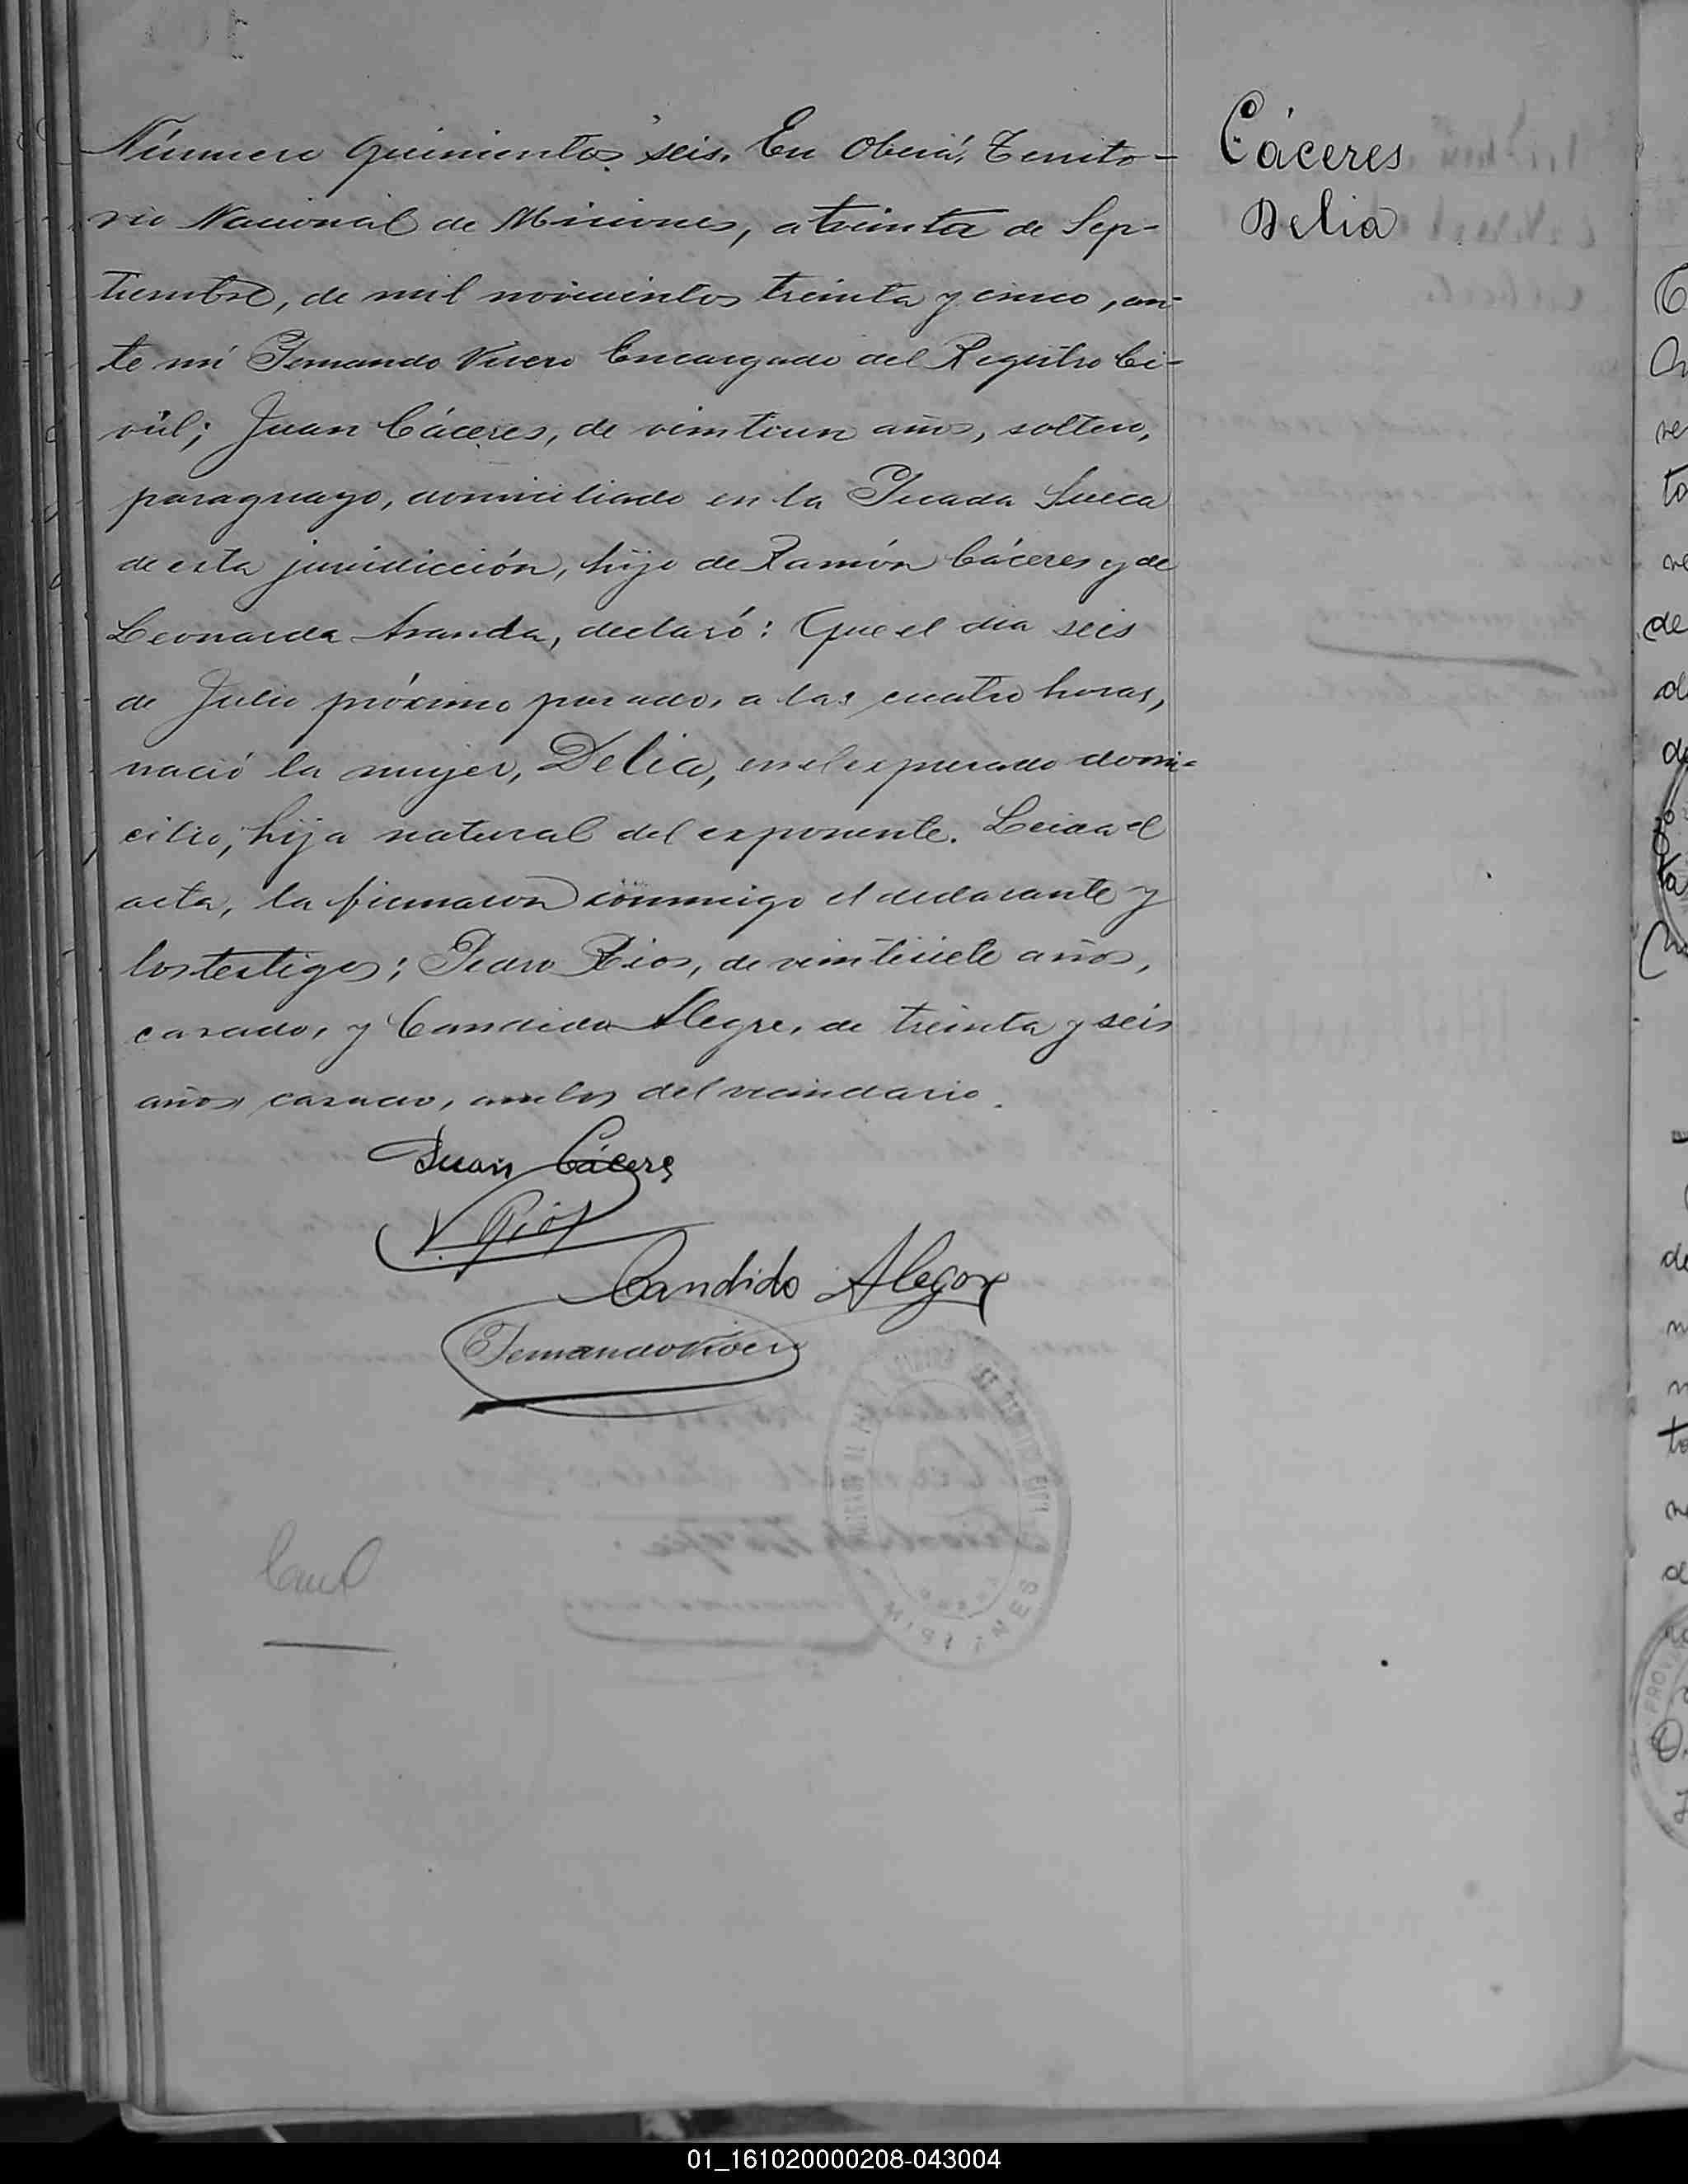 Número quinientos seis. En Oberá, Territo-
rio Nacional de Misiones, a treinta de Sep-
tiembre, de mil novecientos treinta y cinco, an-
te mí Fernando Vivero Encargado del Registro Ci-
vil; Juan Cáceres, de veintiun años, soltero,
paraguayo, domiciliado en la Picada Sueca
de esta jurisdicción, hijo de Ramón Cáceres y de
Leonarda Aranda, declaró: Que el día seis
de Julio próximo pasado, a las cuatro horas,
nació la mujer, Delia, en el expresado domi-
cilio, hija natural del exponente. Leida el
acta, la firmaron conmigo el declarante y
los testigos; Pedro Rios, de veintisiete años,
casado, y Candido Alegre, de treinta y seis
años casado, ambos del vecindario.
Juan Cáceres
Rios
Candido Alegre
Fernando Vivero
Cáceres
Delia
MISIONES
01_161020000208-043004